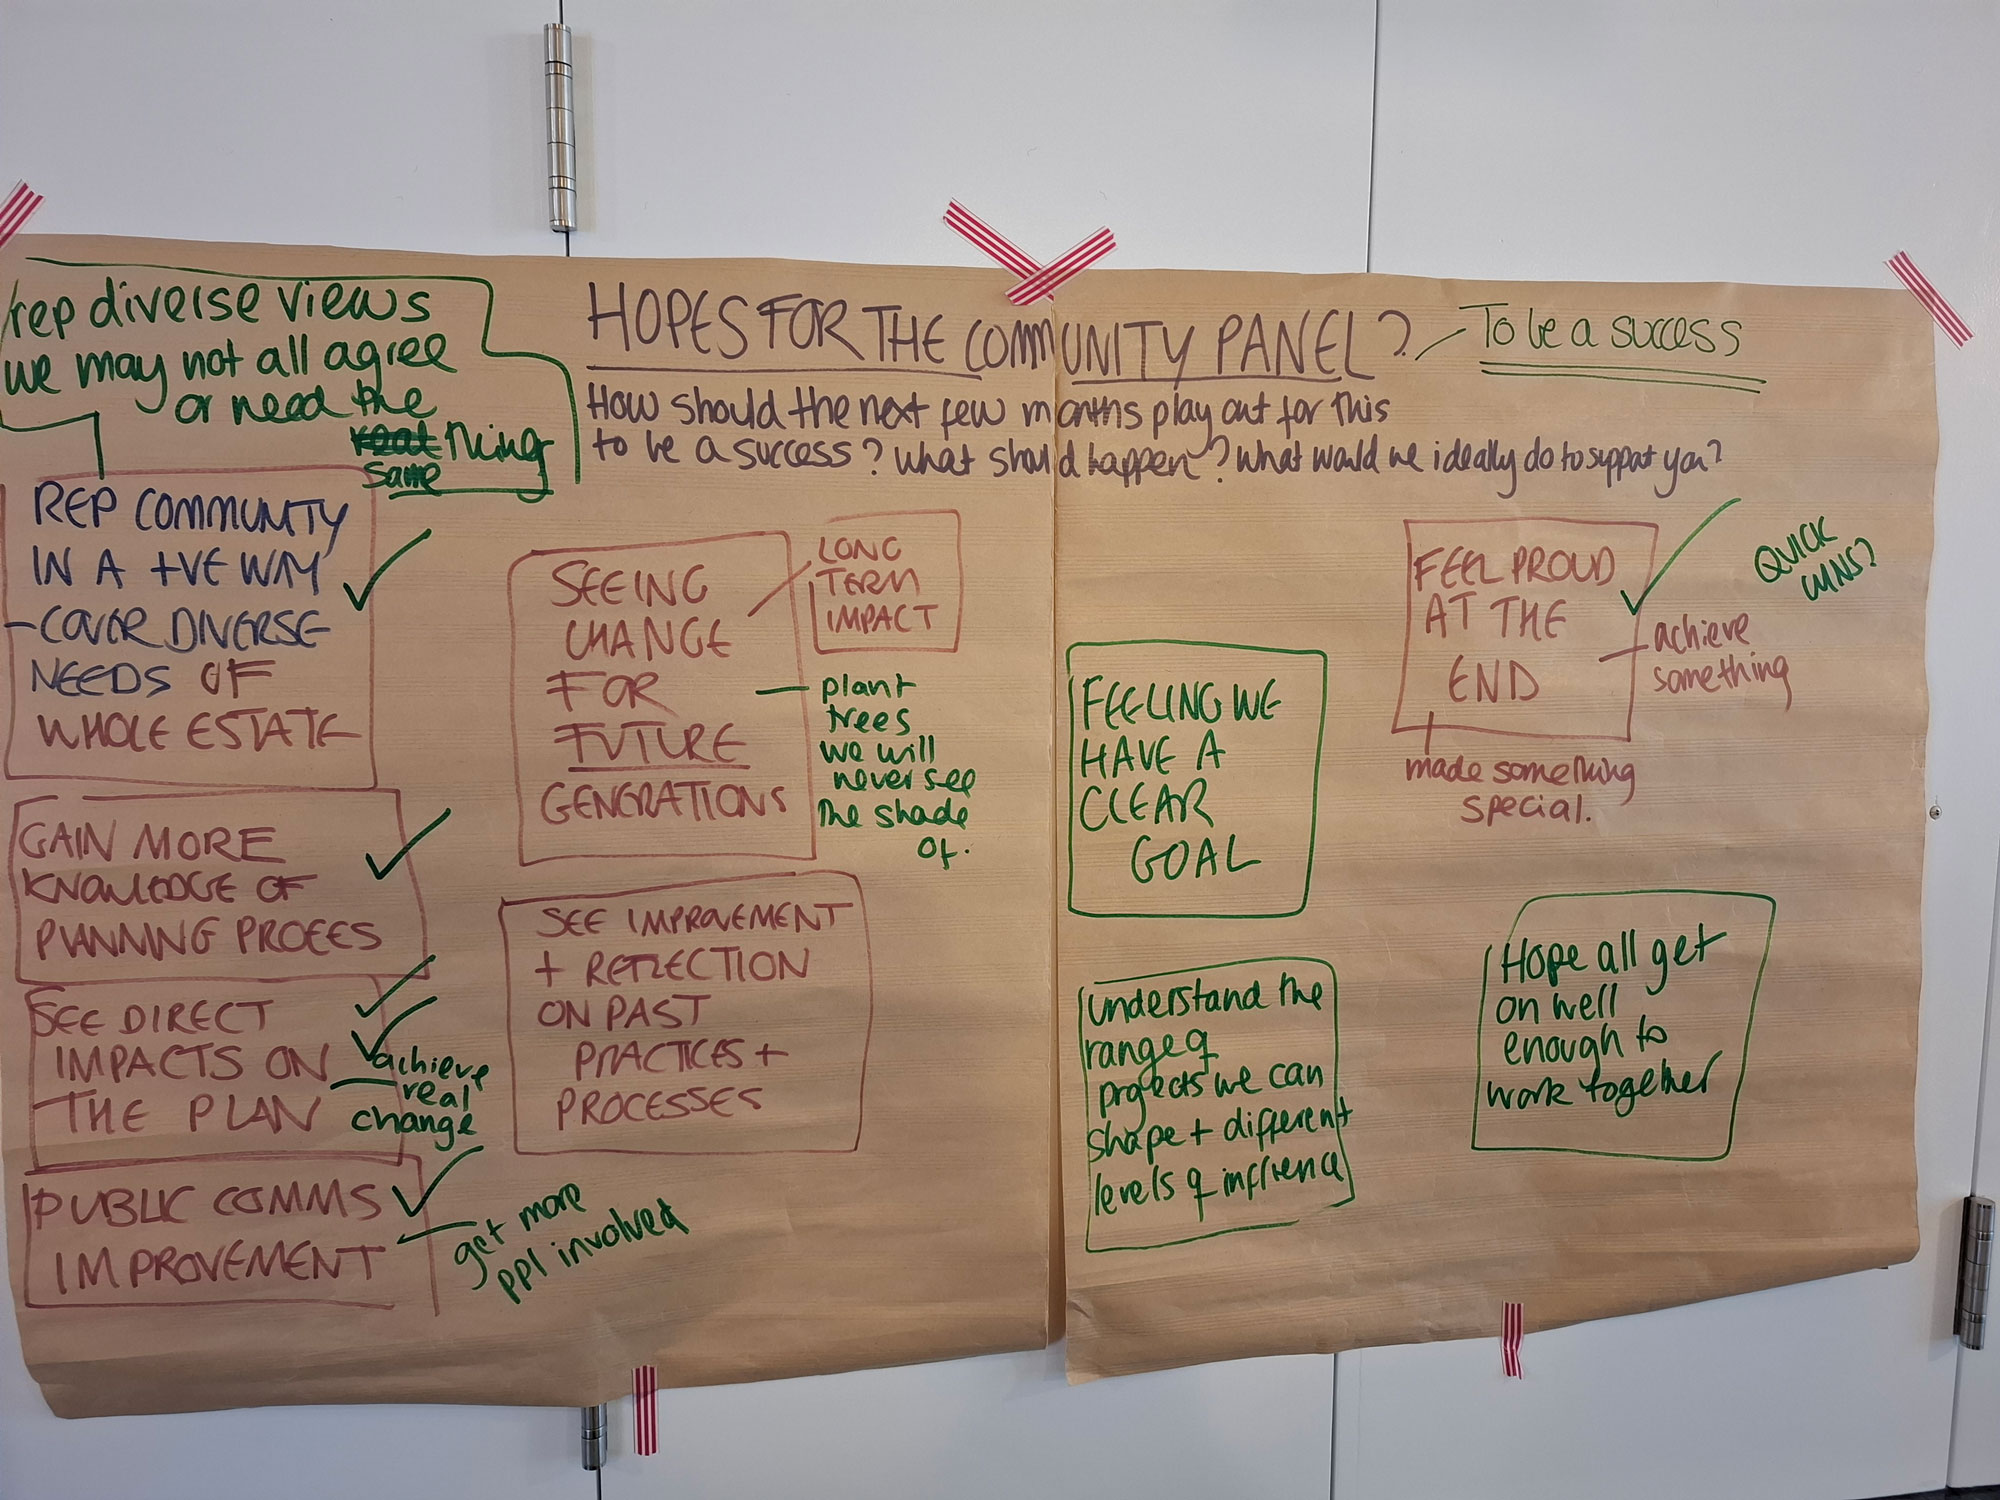 HOPES FOR THE COMMUNITY PANEL?
To be a success
How should the next few months play out for this
to be a success? What should happen? What would we ideally do to support you?
rep diverse views
we may not all agree
or need the
thing
same
REP COMMUNITY
IN A +VE WAY
- COVER DIVERSE
NEEDS OF
WHOLE ESTATE
GAIN MORE
KNOWLEDGE OF
PLANNING PROCEES
SEE DIRECT
IMPACTS ON
THE PLAN
achieve
real
change
PUBLIC COMMS
IMPROVEMENT
get more
ppl involved
SEEING
CHANGE
FOR
FUTURE
GENERATIONS
LONG
TERM
IMPACT
plant
trees
we will
never see
the shade
of.
SEE IMPROVEMENT
+ REFLECTION
ON PAST
PRACTICES +
PROCESSES
FEELING WE
HAVE A
CLEAR
GOAL
understand the
range of
projects we can
shape + different
levels of influence
FEEL PROUD
AT THE
END
achieve
something
made something
special.
QUICK
WINS?
Hope all get
on well
enough to
work together